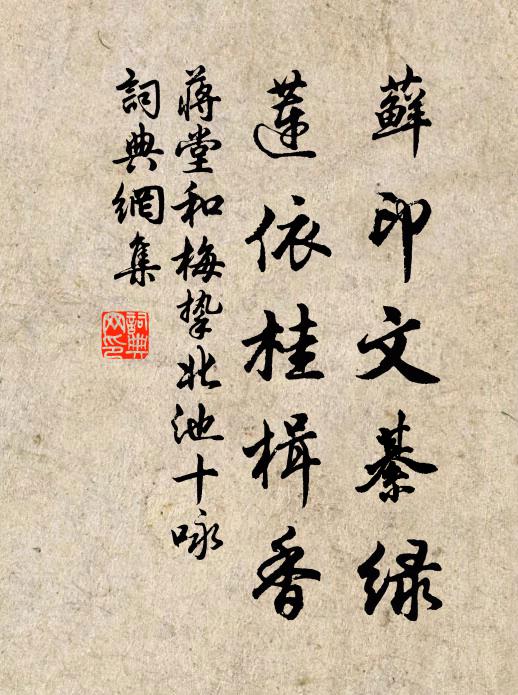 蘚印文綦綠
蓮依桂楫香
蔣堂和梅摯北池十咏
詞典網集
詞典
网印